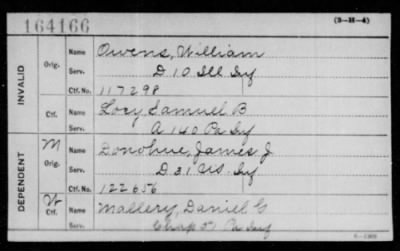 164166
(3-H-4)
INVALID
Orig. Name Owens, William
Serv. D 10 Ill Inf
Ctf. No. 117298
Ctf. Name Lory Samuel B
Serv. A 140 Pa Inf
DEPENDENT
M Orig. Name Donohue, James J
Serv. D 31 US. Inf
Ctf. No. 122656
Ctf. Name Mallery, Daniel G
Serv. Chap 57 Pa Inf